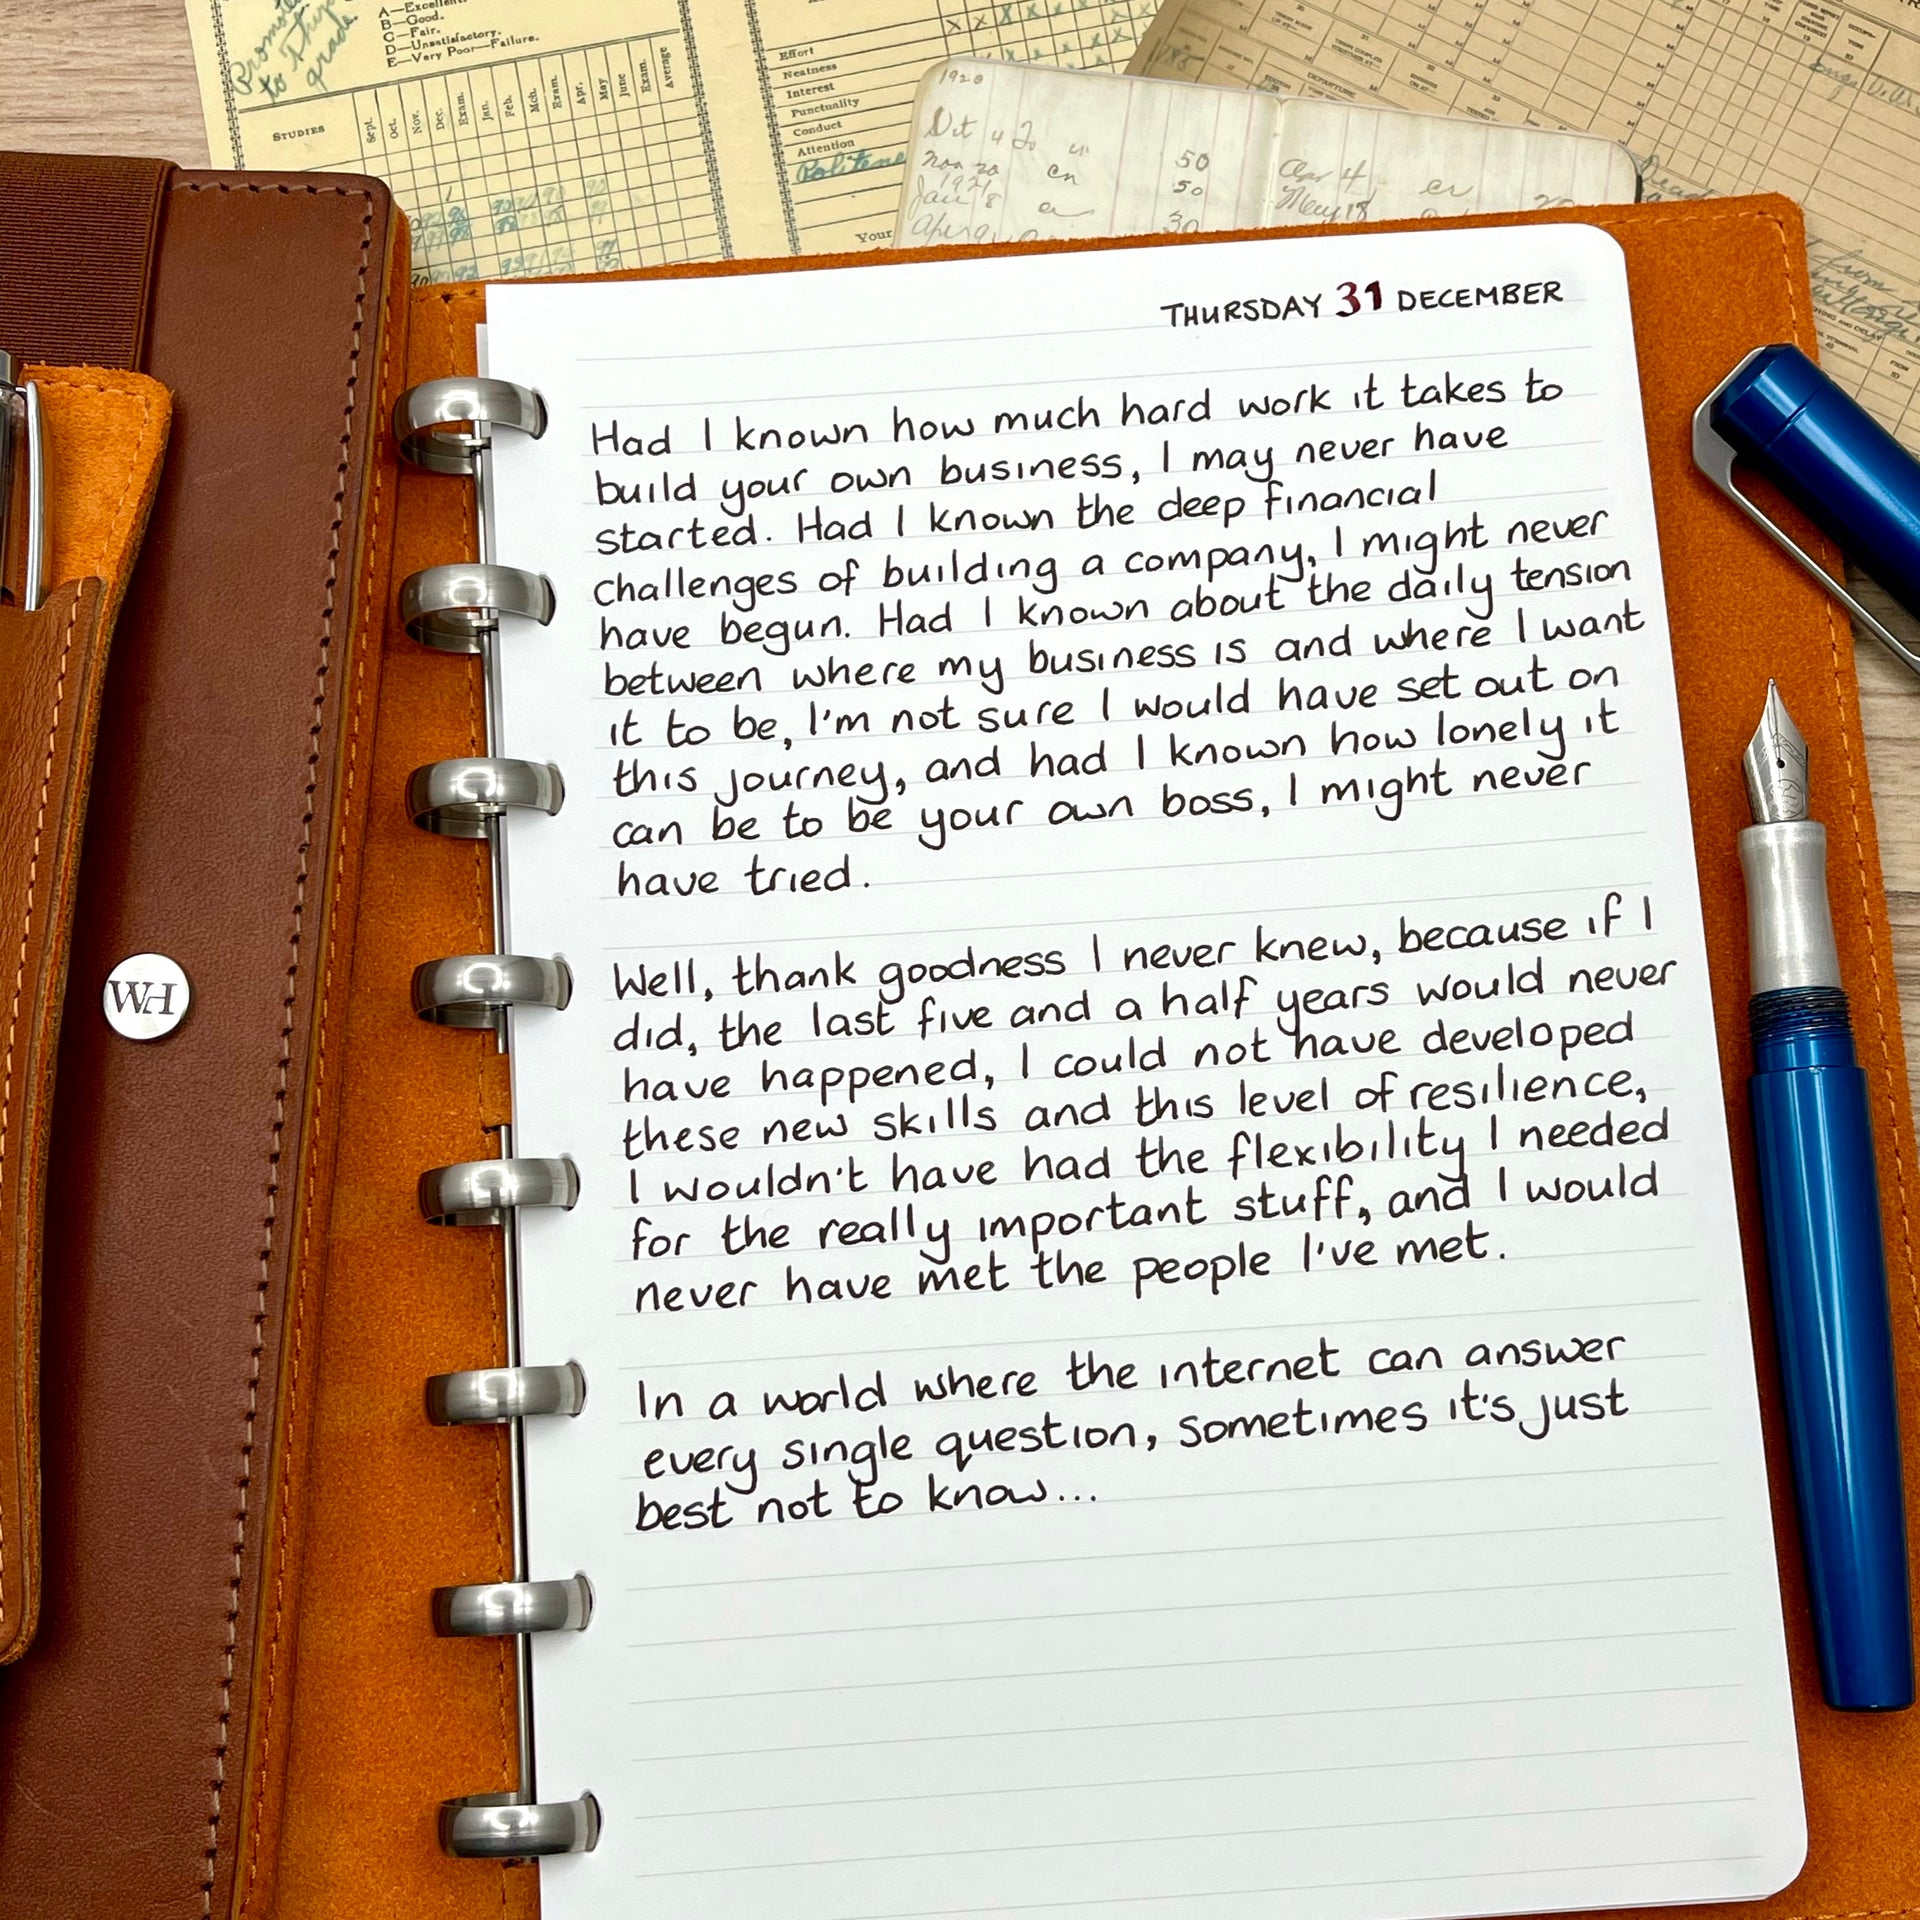 Promoted
to Third
grade.
A—Excellent.
B—Good.
C—Fair.
D—Unsatisfactory.
E—Very Poor—Failure.
STUDIES
Sept.
Oct.
Nov.
Dec.
Exam.
Jan.
Feb.
Mch.
Exam.
Apr.
May
June
Exam.
Average
Effort
Neatness
Interest
Punctuality
Conduct
Attention
Your
1920
50
50
30
Apr 4
May 18
WH
THURSDAY 31 DECEMBER
Had I known how much hard work it takes to
build your own business, I may never have
started. Had I known the deep financial
challenges of building a company, I might never
have begun. Had I known about the daily tension
between where my business is and where I want
it to be, I'm not sure I would have set out on
this journey, and had I known how lonely it
can be to be your own boss, I might never
have tried.
Well, thank goodness I never knew, because if I
did, the last five and a half years would never
have happened, I could not have developed
these new skills and this level of resilience,
I wouldn't have had the flexibility I needed
for the really important stuff, and I would
never have met the people I've met.
In a world where the internet can answer
every single question, sometimes it's just
best not to know...